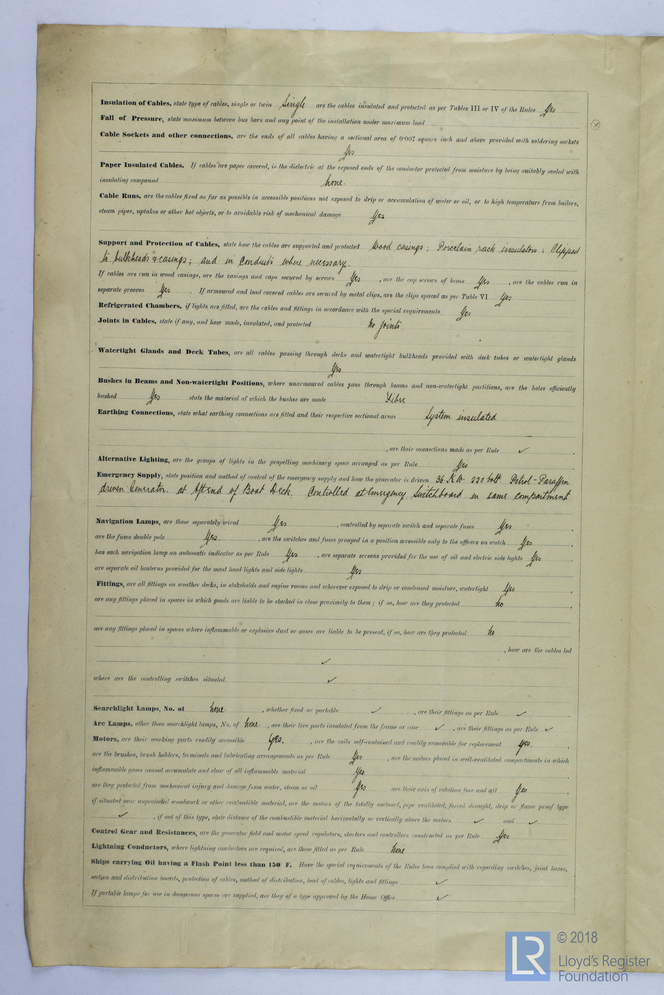 Insulation of Cables, state type of cables, single or twin Single are the cables insulated and protected as per Tables III or IV of the Rules Yes
Fall of Pressure, state maximum between bus bars and any point of the installation under maximum load
Cable Sockets and other connections, are the ends of all cables having a sectional area of 0·007 square inch and above provided with soldering sockets
Yes
Paper Insulated Cables. If cables are paper covered, is the dielectric at the exposed ends of the conductor protected from moisture by being suitably sealed with
insulating compound none.
Cable Runs, are the cables fixed as far as possible in accessible positions not exposed to drip or accumulation of water or oil, or to high temperature from boilers,
steam pipes, uptakes or other hot objects, or to avoidable risk of mechanical damage Yes
Support and Protection of Cables, state how the cables are supported and protected Wood casings; Porcelain rack insulators; Clipped
to bulkheads & casings; and in conduits where necessary.
If cables are run in wood casings, are the casings and caps secured by screws Yes , are the cap screws of brass Yes , are the cables run in
separate grooves Yes If armoured and lead covered cables are secured by metal clips, are the clips spaced as per Table VI Yes
Refrigerated Chambers, if lights are fitted, are the cables and fittings in accordance with the special requirements Yes
Joints in Cables, state if any, and how made, insulated, and protected No joints.
Watertight Glands and Deck Tubes, are all cables passing through decks and watertight bulkheads provided with deck tubes or watertight glands
Yes
Bushes in Beams and Non-watertight Positions, where unarmoured cables pass through beams and non-watertight partitions, are the holes efficiently
bushed Yes state the material of which the bushes are made Fibre
Earthing Connections, state what earthing connections are fitted and their respective sectional areas System insulated
, are their connections made as per Rule ✓
Alternative Lighting, are the groups of lights in the propelling machinery space arranged as per Rule Yes
Emergency Supply, state position and method of control of the emergency supply and how the generator is driven 36 K.W. 220 volt Petrol-Paraffin
driven Generator. at Aft end of Boat Deck. Controlled at Emergency Switchboard in same compartment
Navigation Lamps, are these separately wired Yes , controlled by separate switch and separate fuses Yes ,
are the fuses double pole Yes. , are the switches and fuses grouped in a position accessible only to the officers on watch Yes ,
has each navigation lamp an automatic indicator as per Rule Yes , are separate screens provided for the use of oil and electric side lights Yes ,
are separate oil lanterns provided for the mast head lights and side lights Yes
Fittings, are all fittings on weather decks, in stokeholds and engine rooms and wherever exposed to drip or condensed moisture, watertight Yes
are any fittings placed in spaces in which goods are liable to be stacked in close proximity to them; if so, how are they protected no ,
are any fittings placed in spaces where inflammable or explosive dust or gases are liable to be present, if so, how are they protected No
, how are the cables led
✓
where are the controlling switches situated ✓
Searchlight Lamps, No. of none , whether fixed or portable ✓ , are their fittings as per Rule ✓
Arc Lamps, other than searchlight lamps, No. of none , are their live parts insulated from the frame or case ✓ , are their fittings as per Rule ✓
Motors, are their working parts readily accessible Yes. , are the coils self-contained and readily removable for replacement yes ,
are the brushes, brush holders, terminals and lubricating arrangements as per Rule Yes , are the motors placed in well-ventilated compartments in which
inflammable gases cannot accumulate and clear of all inflammable material Yes
are they protected from mechanical injury and damage from water, steam or oil Yes are their axis of rotation fore and aft Yes ,
if situated near unprotected woodwork or other combustible material, are the motors of the totally enclosed, pipe ventilated, forced draught, drip or flame proof type
✓ , if not of this type, state distance of the combustible material horizontally or vertically above the motors ✓ and ✓
Control Gear and Resistances, are the generator field and motor speed regulators, starters and controllers constructed as per Rule Yes
Lightning Conductors, where lightning conductors are required, are these fitted as per Rule none
Ships carrying Oil having a Flash Point less than 150° F. Have the special requirements of the Rules been complied with regarding switches, joint boxes,
section and distribution boards, protection of cables, method of distribution, lead of cables, lights and fittings ✓
If portable lamps for use in dangerous spaces are supplied, are they of a type approved by the Home Office ✓
LR
© 2018
Lloyd's Register
Foundation